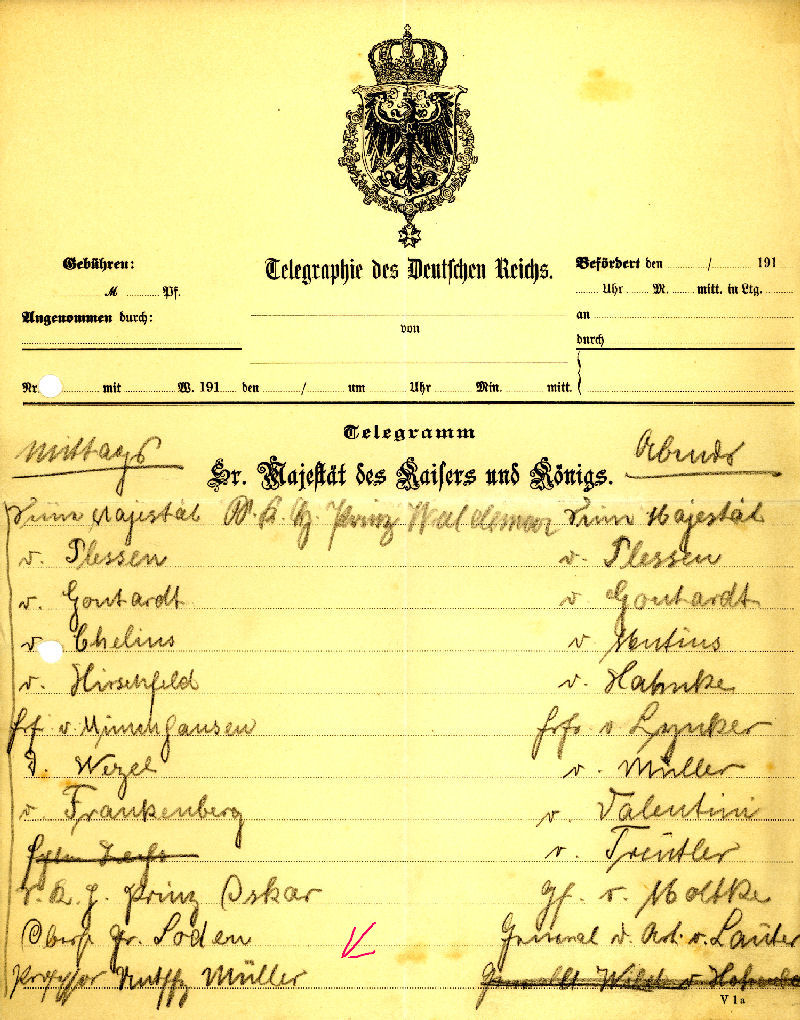 Gebühren:
M Pf.
Angenommen durch:
Telegraphie des Deutschen Reichs.
von
Befördert den / 191
Uhr M. mitt. in Ltg.
an
durch
Nr. mit W. 191 den / um Uhr Min. mitt.
Telegramm
Sr. Majestät des Kaisers und Königs.
Mittags
Seine Majestät
v. Plessen
v. Gontardt
v. Chelius
v. Hirschfeld
v. Münchhausen
Wezel
v. Frankenberg
K. H. Prinz Oskar
Gr. Soden
Professor Müller
K. H. Prinz Waldemar
Abends
Seine Majestät
v. Plessen
v. Gontardt
v. Mutius
v. Hahnke
Frhr v Lynker
v. Müller
v. Valentini
v. Treutler
Gf. v. Moltke
General d. Art. v. Lauter
V 1a